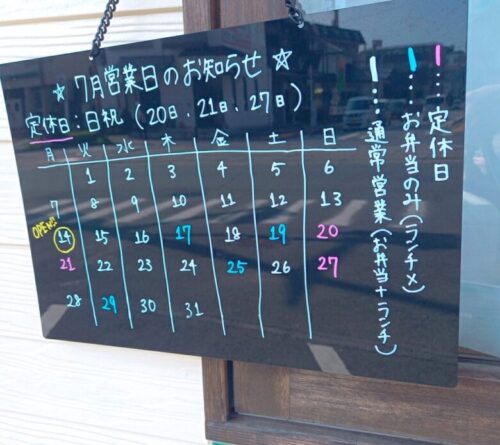 ☆ 7月営業日のお知らせ ☆
定休日：日祝（20日、21日、27日）
月 火 水 木 金 土 日
1 2 3 4 5 6
7 8 9 10 11 12 13
OPEN!!
14 15 16 17 18 19 20
21 22 23 24 25 26 27
28 29 30 31
…定休日
…お弁当のみ（ランチ×）
…通常営業（お弁当＋ランチ）